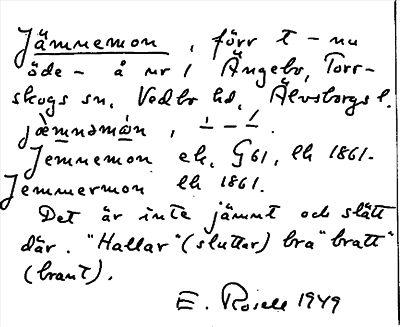 Jämnemon, förr t – nu
öde – å nr 1 Ängebo, Torr-
skogs sn, Vedbo hd, Älvsborgs l.
jæ̀mnəmòn, – – –.
Jemnemon ek. G61, lk 1861.
Jemmermon lk 1861.
Det är inte jämnt och slätt
där. "Hallar" (sluttar) bra "bratt"
(brant).
E. Rosell 1949